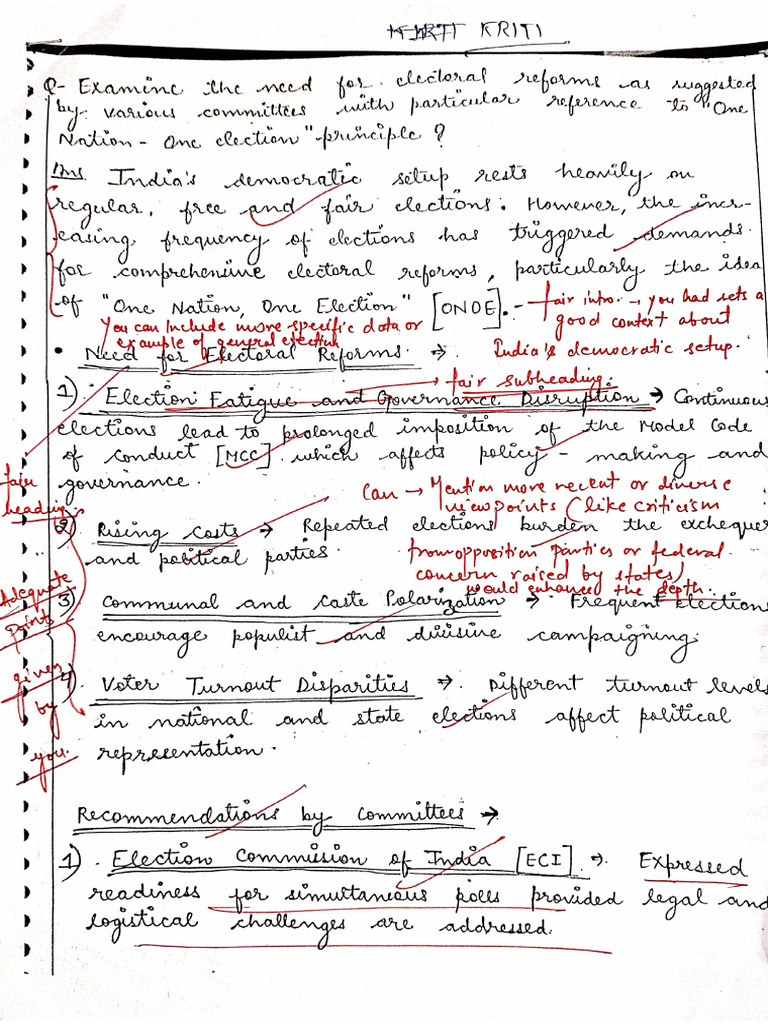 KRITI
Q- Examine the need for electoral reforms as suggested
by various committees with particular reference to "One
Nation - One election" principle ?
Ans. India's democratic setup rests heavily on
regular, free and fair elections. However, the incr-
easing frequency of elections has triggered demands
for comprehensive electoral reforms, particularly the idea
of "One Nation, One Election" [ONOE]. -
fair intro. → you had sets a
good context about
India's democratic setup.
You can include more specific data or
example of general election
• Need for Electoral Reforms →
fair heading.
1) Election Fatigue and Governance Disruption → Continuous
→ fair subheading.
elections lead to prolonged imposition of the Model Code
of conduct [MCC] which affects policy - making and
governance.
Can → Mention more recent or diverse
viewpoints (like criticism
from opposition parties or federal
concern raised by states)
would enhance the depth.
2) Rising Costs → Repeated elections burden the exchequer
and political parties.
3) Communal and Caste Polarization → Frequent elections
encourage populist and divisive campaigning.
Adequate
points
given
by
you.
4) Voter Turnout Disparities → Different turnout levels
in national and state elections affect political
representation.
Recommendations by Committees →
1) . Election Commission of India [ECI] → Expressed
readiness for simultaneous polls provided legal and
logistical challenges are addressed.